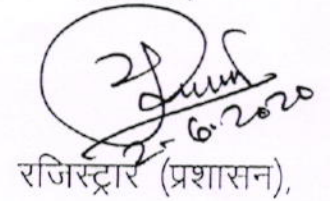 2-6-2020
रजिस्ट्रार (प्रशासन),